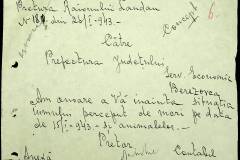 Pretura Raionului Landau
Nr. 181 din 26/I-943.-
Concept
6.
Către
Prefectura Județului
Serv. Economic
Berezovca
Am onoare a Vă înainta situația
uiumului perceput de mori pe data
de 15/I-943.- și animalelor.-
Pretor
Contabil